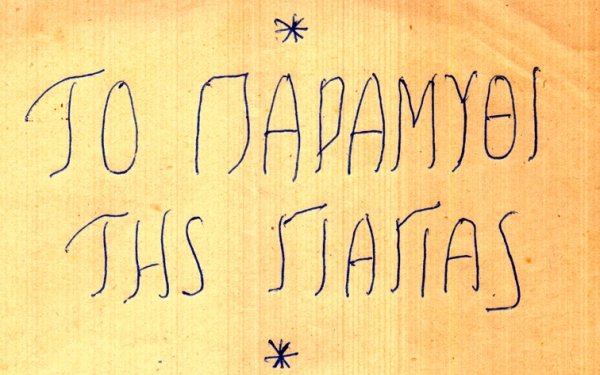 *
ΤΟ ΠΑΡΑΜΥΘΙ
ΤΗΣ ΓΙΑΓΙΑΣ
*